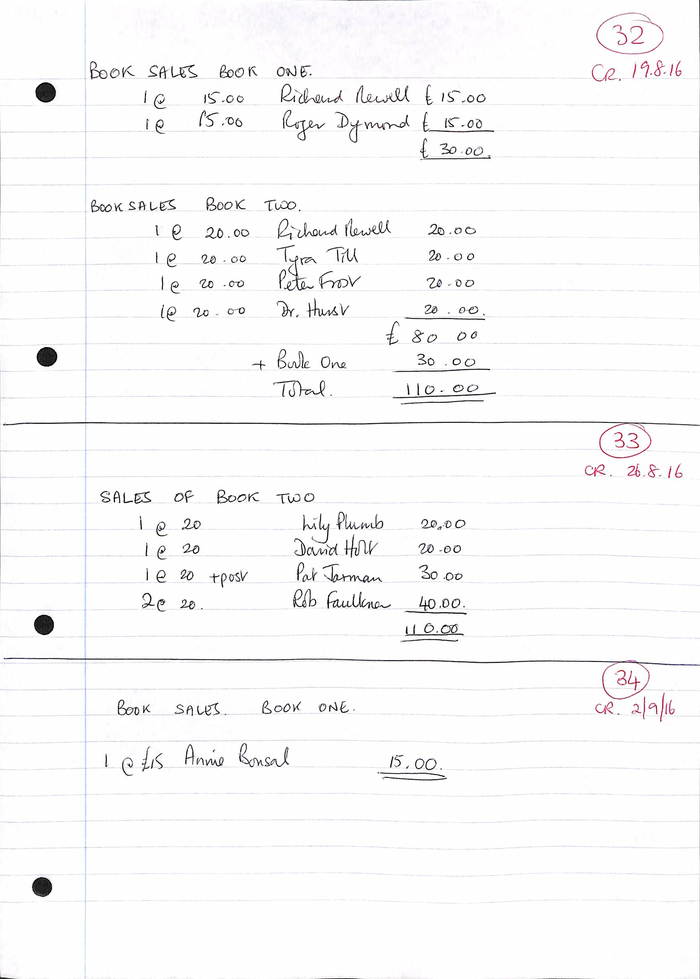 32
CR. 19.8.16
BOOK SALES BOOK ONE.
1 @ 15.00 Richard Newell £ 15.00
1 @ 15.00 Roger Dymond £ 15.00
£ 30.00.
BOOK SALES BOOK TWO.
1 @ 20.00 Richard Newell 20.00
1 @ 20.00 Tyra Till 20.00
1 @ 20.00 Peter Frost 20.00
1 @ 20.00 Dr. Hurst 20.00.
£ 80 00
+ Book One 30.00
Total. 110.00
33
CR. 26.8.16
SALES OF BOOK TWO
1 @ 20 Lily Plumb 20.00
1 @ 20 David Holt 20.00
1 @ 20 +post Pat Jarman 30.00
2 @ 20. Rob Faulkner 40.00.
110.00
34
CR. 2/9/16
BOOK SALES. BOOK ONE.
1 @ £15 Annie Bonsal 15.00.